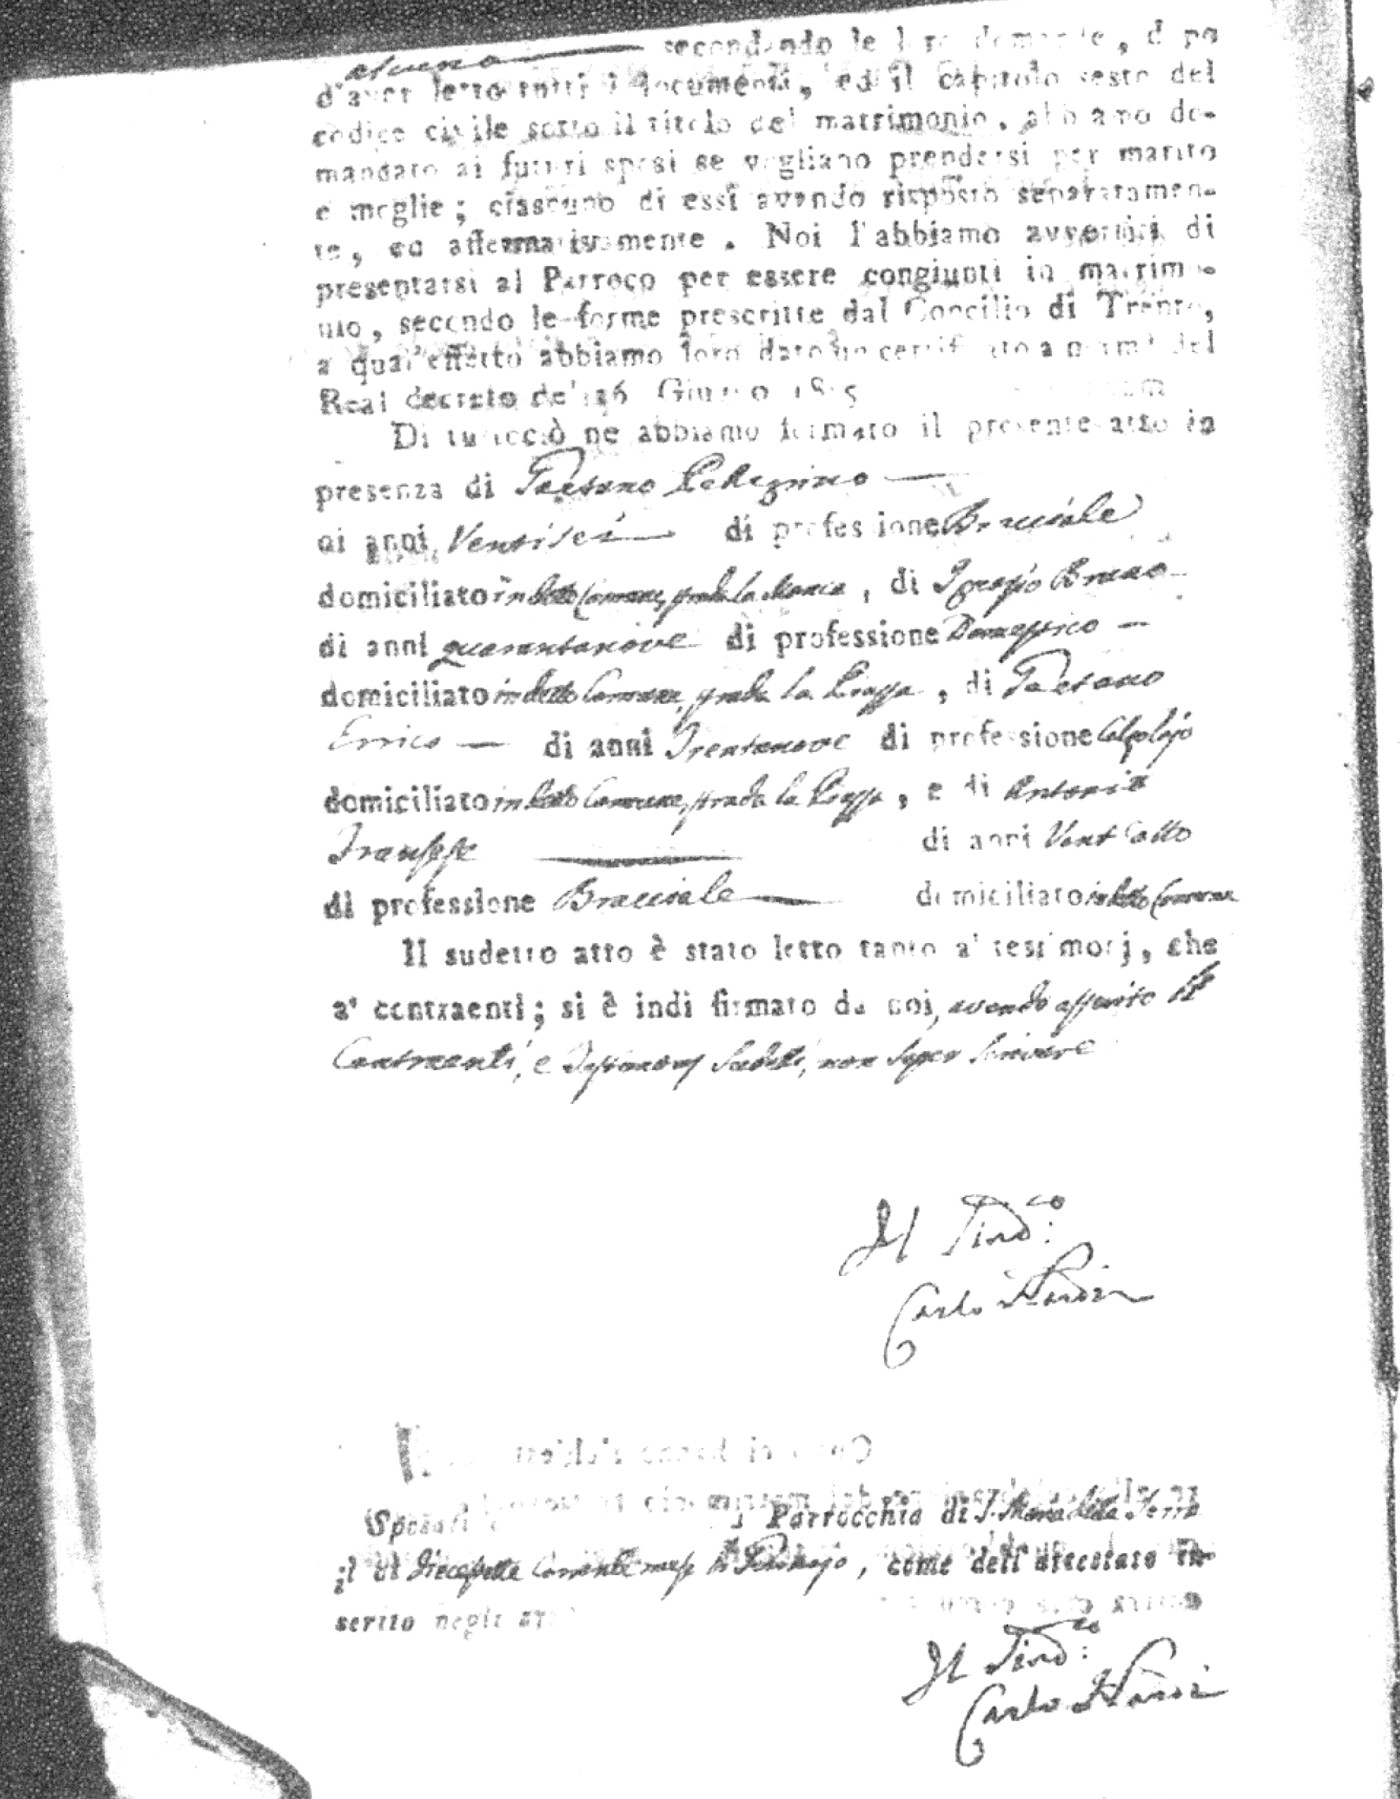 alcuno secondando le loro domande, dopo
d'aver letto tutti i documenti, ed il capitolo sesto del
codice civile sotto il titolo del matrimonio, abbiamo do-
mandato ai futuri sposi se vogliano prendersi per marito
e moglie; ciascuno di essi avendo risposto separatamen-
te, ed affermativamente. Noi l'abbiamo avvertiti di
presentarsi al Parroco per essere congiunti in matrimo-
nio, secondo le forme prescritte dal Concilio di Trento,
a qual'effetto abbiamo loro dato un certificato a norma del
Real decreto de' 16 Giugno 1815
Di tutto ciò ne abbiamo formato il presente atto in
presenza di Gaetano Pellegrino
di anni Ventisei di professione Bracciale
domiciliato in detto Comune, strada la , di Ignazio Bruno
di anni quarantanove di professione Domestico
domiciliato in detto Comune, strada la Piazza, di Gaetano
Errico di anni Trentanove di professione Calzolajo
domiciliato in detto Comune, strada la Piazza, e di Antonio
di anni Vent'otto
di professione Bracciale domiciliato in detto Comune
Il sudetto atto è stato letto tanto a' testimonj, che
a' contraenti; si è indi firmato da noi, avendo asserito li
Contraenti, e Testimonj sudetti, non saper scrivere
Il Sind.co
Carlo
Parrocchia di S. Maria della Terra
il dì diecisette corrente mese di Gennajo, come dell'attestato in-
serito negli
Il Sind.co
Carlo